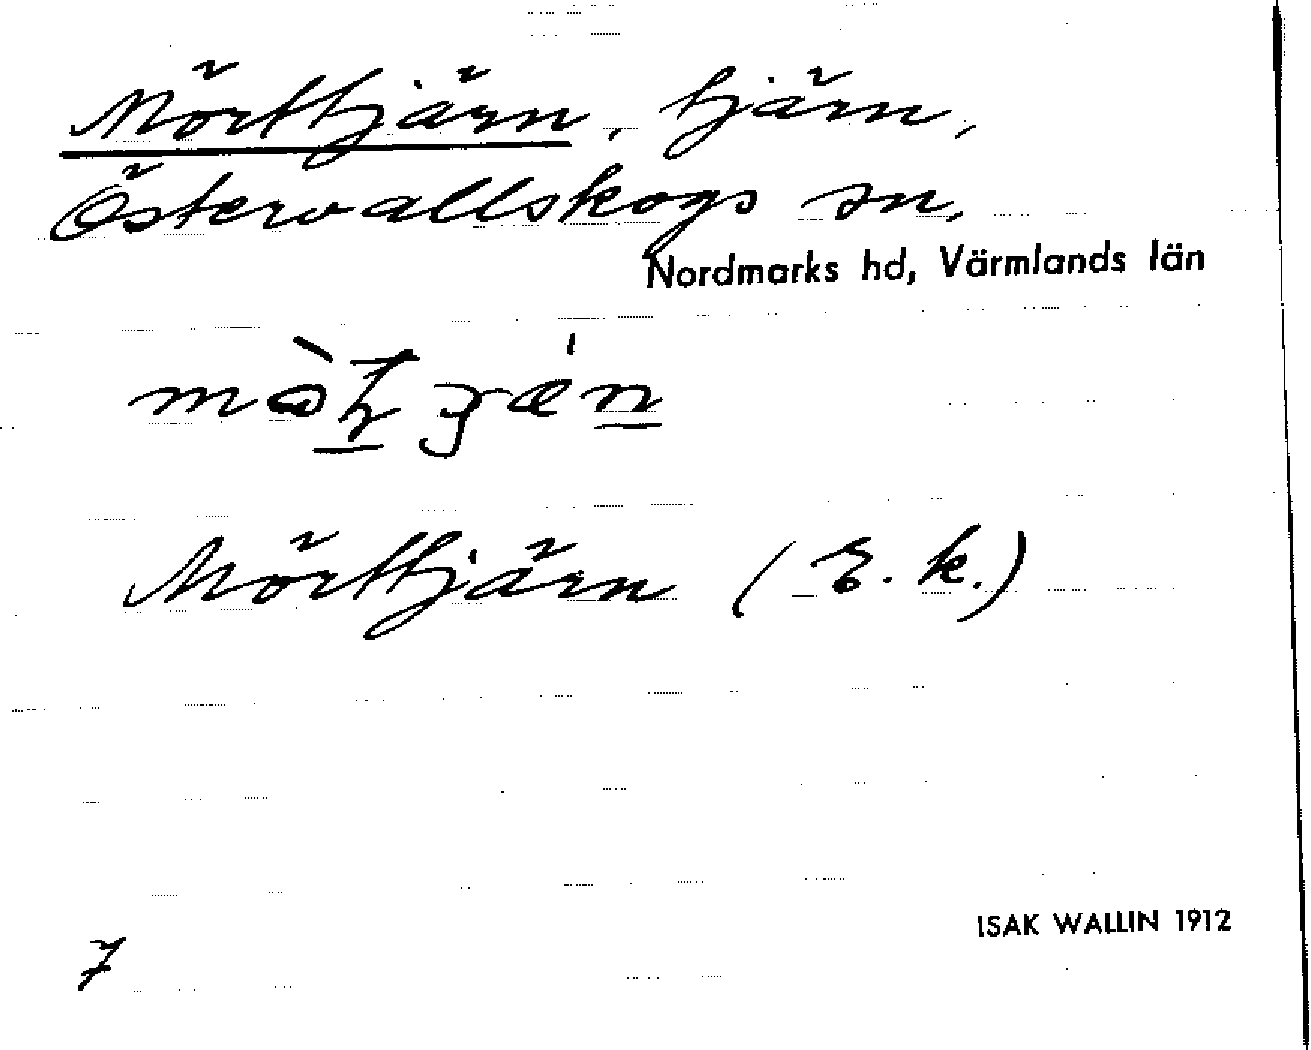 Mörttjärn, tjärn,
Östervallskogs sn,
Nordmarks hd, Värmlands län
Mörttjärn (E. k.)
ISAK WALLIN 1912
7